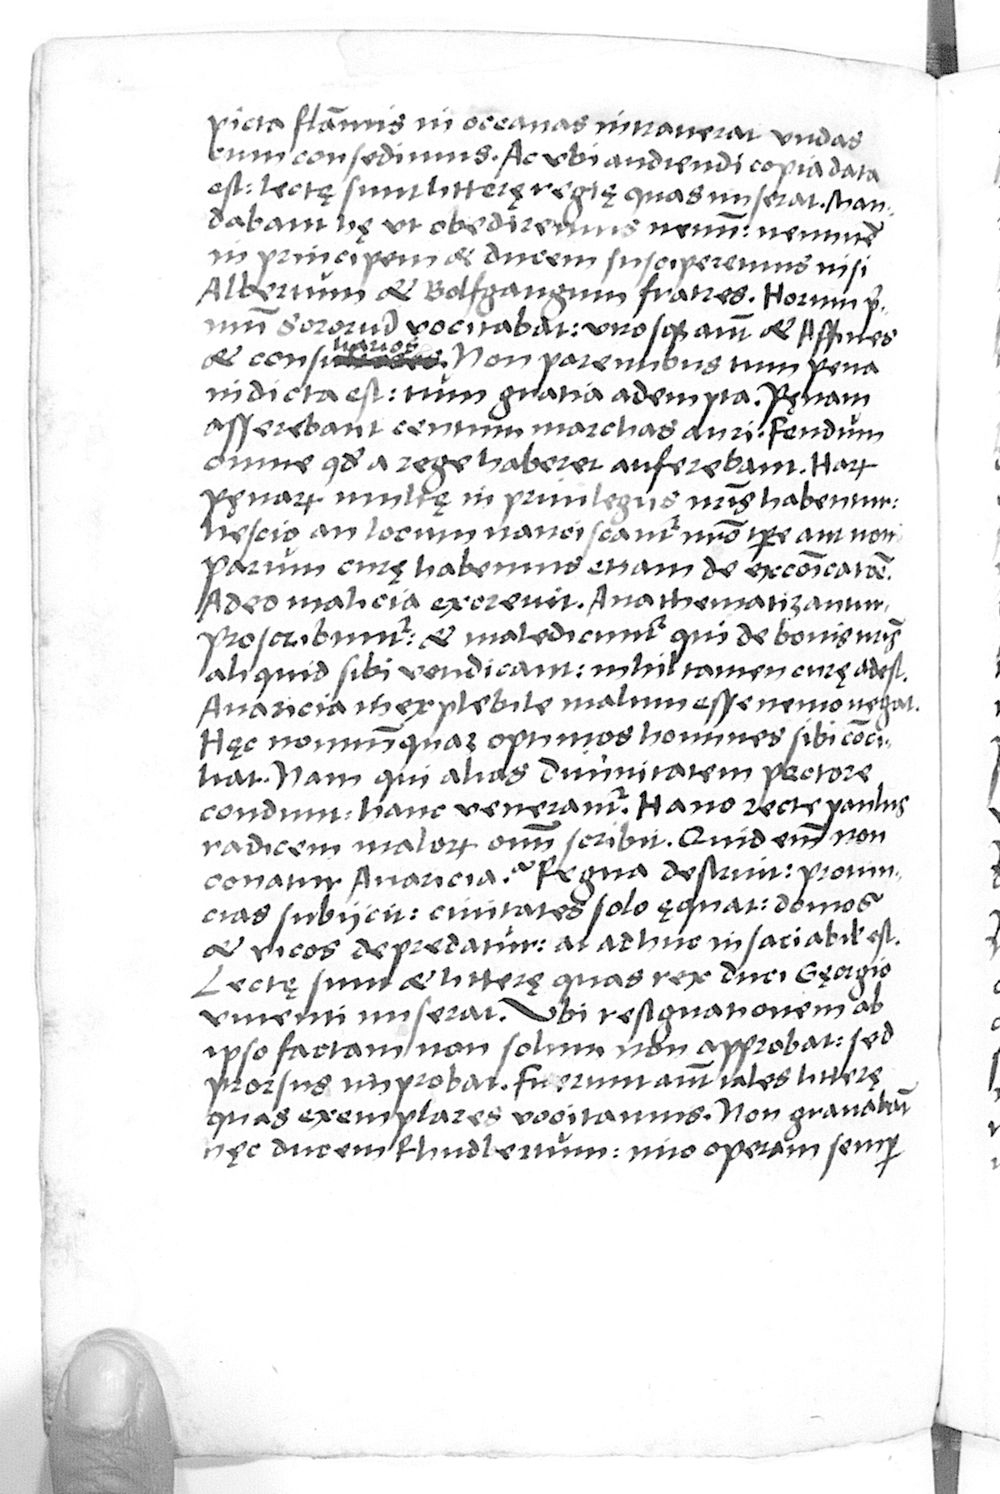 picta flãmis in oceanas intrauerat vndas
cum consedimus. Ac vbi audiendi copia data
est: lectę sunt litterę regię quas miserat. Man-
dabant hę vt obediremus nemĩ: neminẽ
in principem & ducem susciperemus nisi
Albertum & Bolfgangum fratres. Horum p̃-
mũ Sororiũ vocitabat: vtrosq̃ aut̃ & Affines
& consiliarios. Non parentibus tum pena
indicta est: tum gratia adempta. Pęnam
asserebant centum marchas auri: Feudum
omne qd̃ a rege haberet auferebant. Harꝝ
penarꝝ multę in priuilegijs nr̃is habentur:
nescio an locum nanciscant᷑ nrõ tp̃re aut non
parum curę habemus etiam de excõicatõe.
Adeo malicia excreuit. Anathematizantur,
proscribunt᷑: & maledicunt᷑ qui de bonis nr̃is
aliquid sibi vendicant: nihil tamen curę adest.
Auaricia inexplebile malum esse nemo negat.
Hęc nonnũquaꝫ optimos homines sibi cõci-
liat. Nam qui alias Diuinitatem pectore
condunt: hanc venerant᷑. Hanc recte paulus
radicem malorꝝ oĩm scribit. Quid eñ non
conatur Auaricia. Regna destruit: prouin-
cias subijcit: ciuitates solo ęquat: domos
& vicos depredatur: at adhuc insaciabil' est.
Lectę sunt & litterę quas rex duci Gęorgio
viuenti miserat. Vbi resignationem ab
ipso factam non solum non approbat: sed
prorsus improbat. Fuerunt aut̃ tales litterę
quas exemplares vocitamus. Non grauabat᷑
nęc ducem Rhudbertum: imo operam semp̲